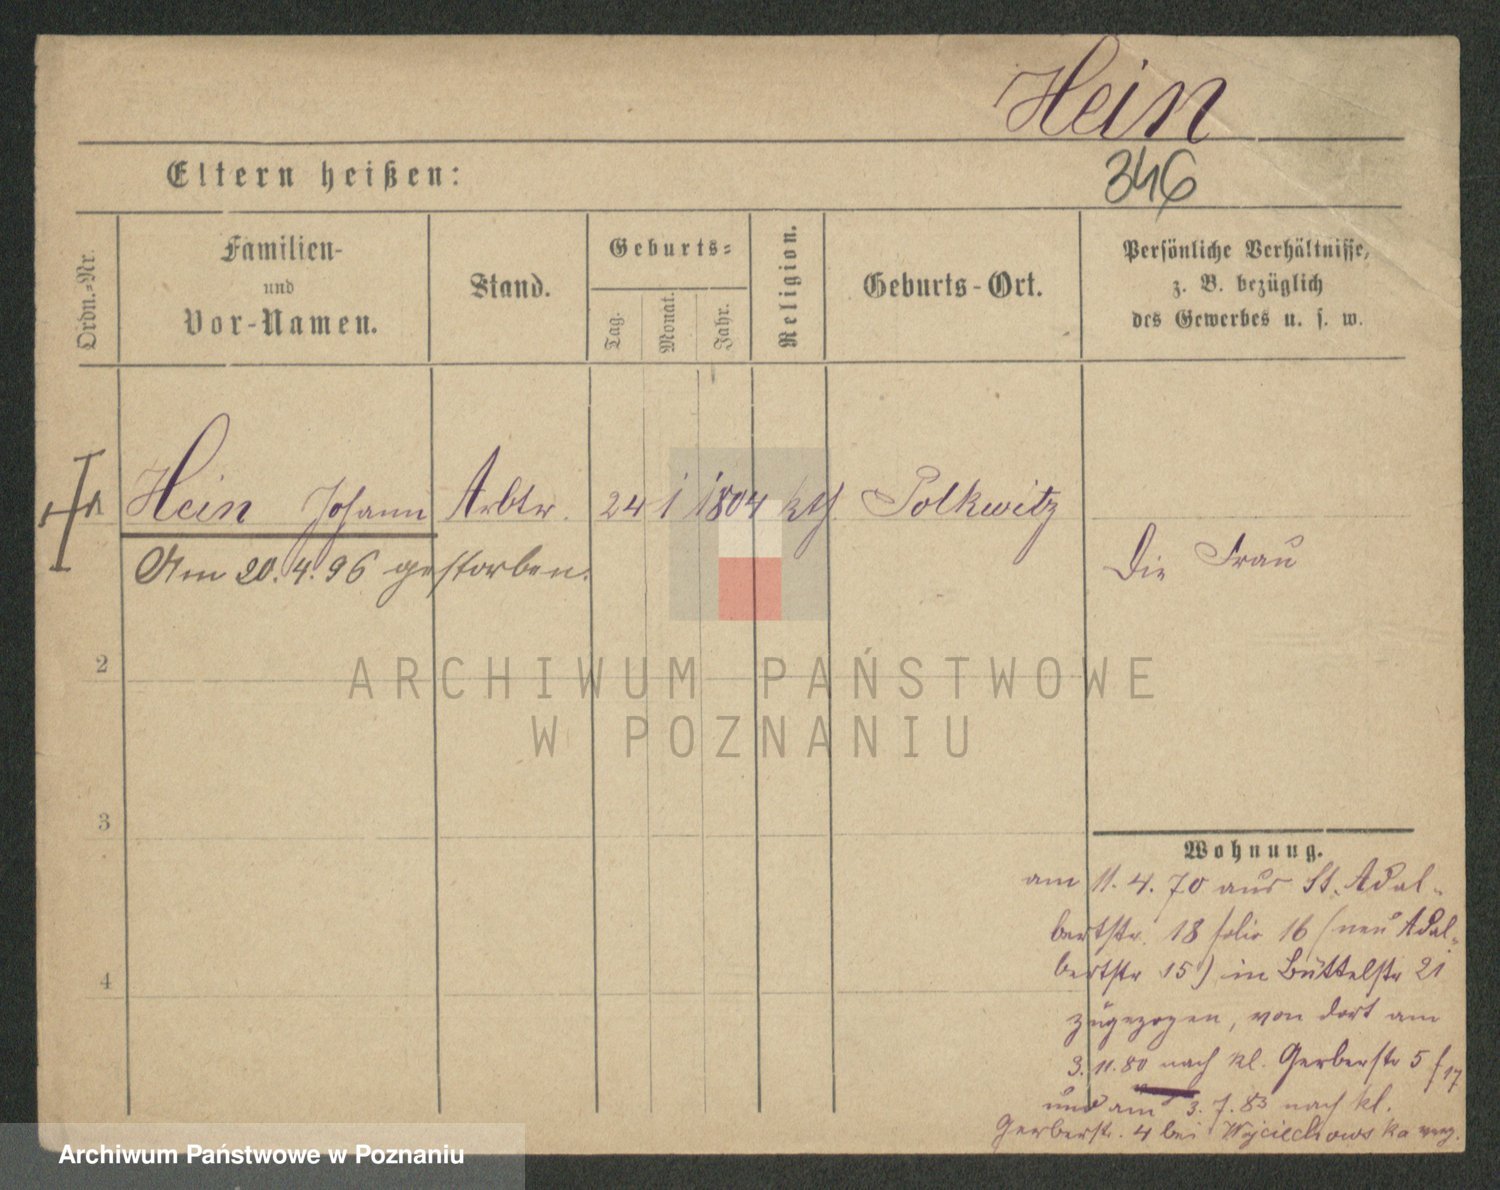 Hein
346
Eltern heißen:
Ordn.-Nr.
Familien-
und
Vor-Namen.
Stand.
Geburts-
Tag.
Monat.
Jahr.
Religion.
Geburts-Ort.
Persönliche Verhältnisse,
z. B. bezüglich
des Gewerbes u. s. w.
Hein Johann Arbtr. 24 1 1804 kth. Polkwitz
Am 20.4.96 gestorben.
Die Frau
2
3
4
Wohnung.
am 11.4.70 aus St. Adal-
bertstr. 18 folio 16 (neu Adal-
bertstr 15) in Büttelstr 21
zugezogen, von dort am
3.11.80 nach kl. Gerberstr 5 f 17
und am 3.7.83 nach kl.
Gerberstr. 4 bei Wojciechowska verz.
ARCHIWUM PAŃSTWOWE
W POZNANIU
Archiwum Państwowe w Poznaniu